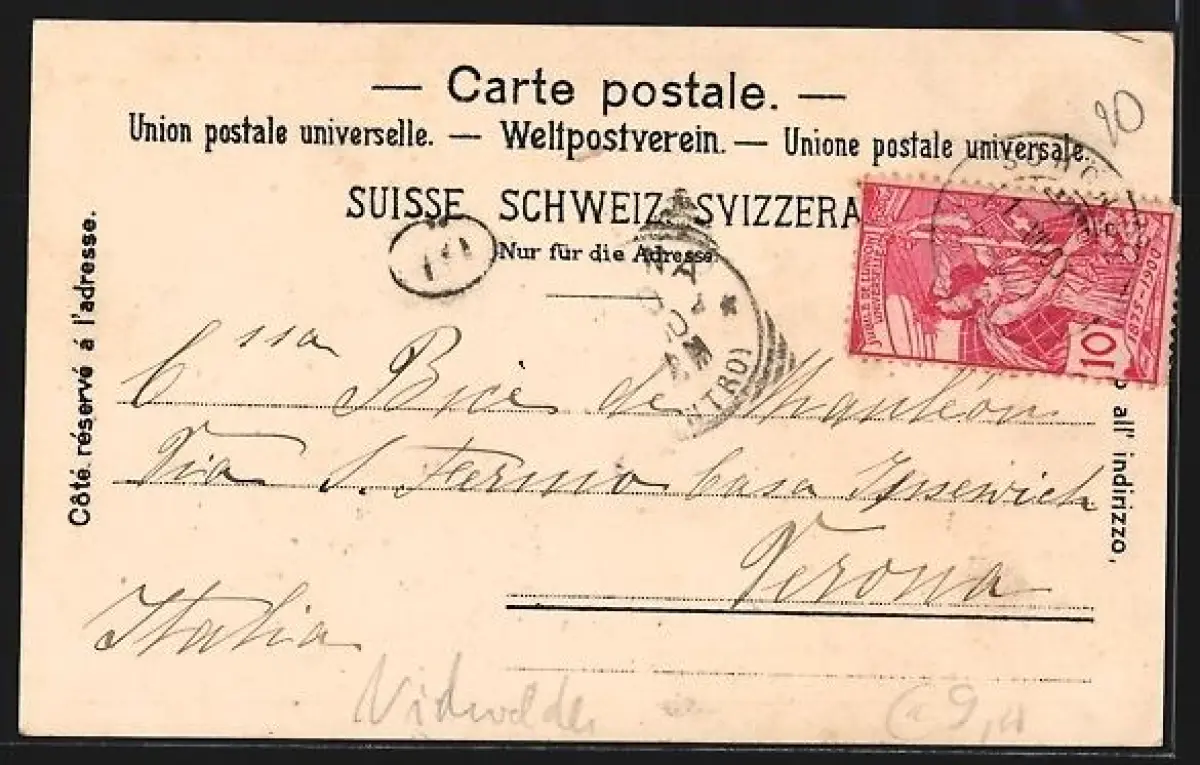 — Carte postale. —
Union postale universelle. — Weltpostverein. — Unione postale universale.
SUISSE SCHWEIZ SVIZZERA
Nur für die Adresse.
Côté réservé á l'adresse.
all' indirizzo,
JUBILÉ DE L'UNION POSTALE
UNIVERSELLE
1875-1900
10
C.ssa Bice de Mauléon
Via S. Fermo Casa
Verona
Italia